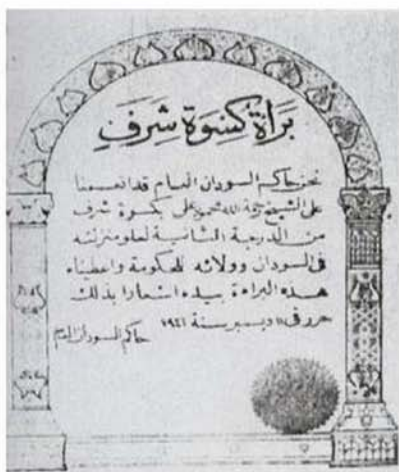 براءة كسوة شرف
نحن حاكم السودان العام قد انعمنا
على الشيخ رحمة الله محمود على بكسوة شرف
من الدرجة الثانية لعلو منزلته
فى السودان وولائه للحكومة واعطيناه
هذه البراءة بيده اشعارا بذلك
حرر فى ديسمبر سنة ١٩٤١
حاكم السودان العام